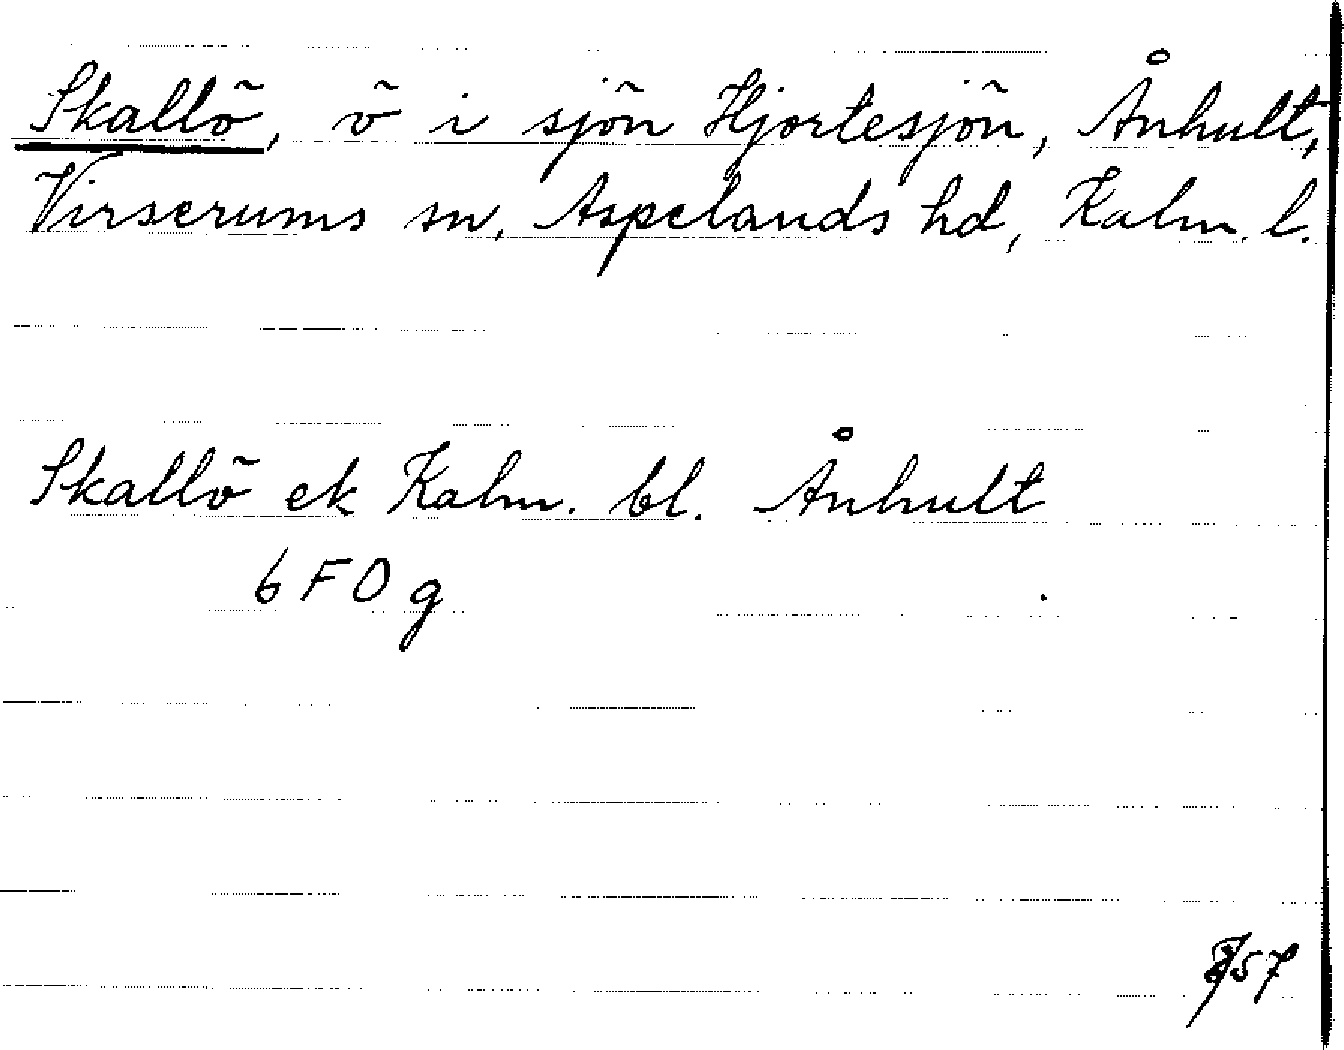 Skallö, ö i sjön Hjortesjön, Ånhult,
Virserums sn, Aspelands hd, Kalm. l.
Skallö ek Kalm. bl. Ånhult
6 F O g
57